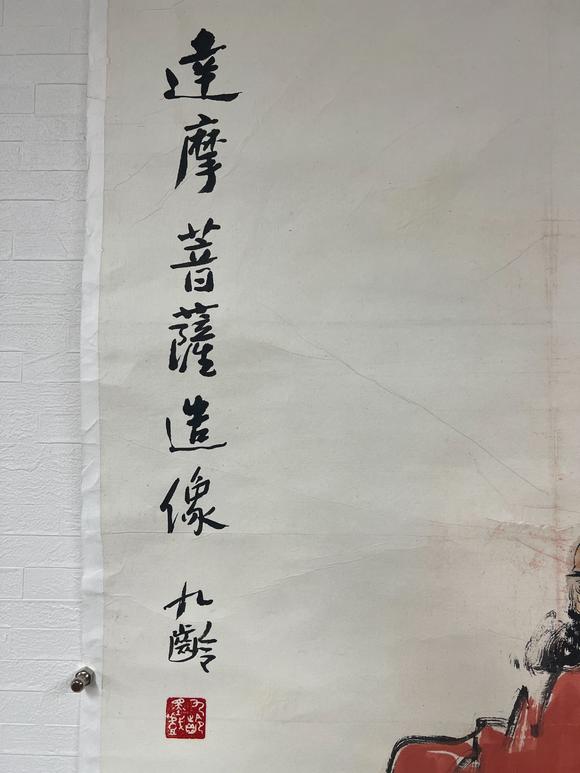 達摩菩薩造像
九齡